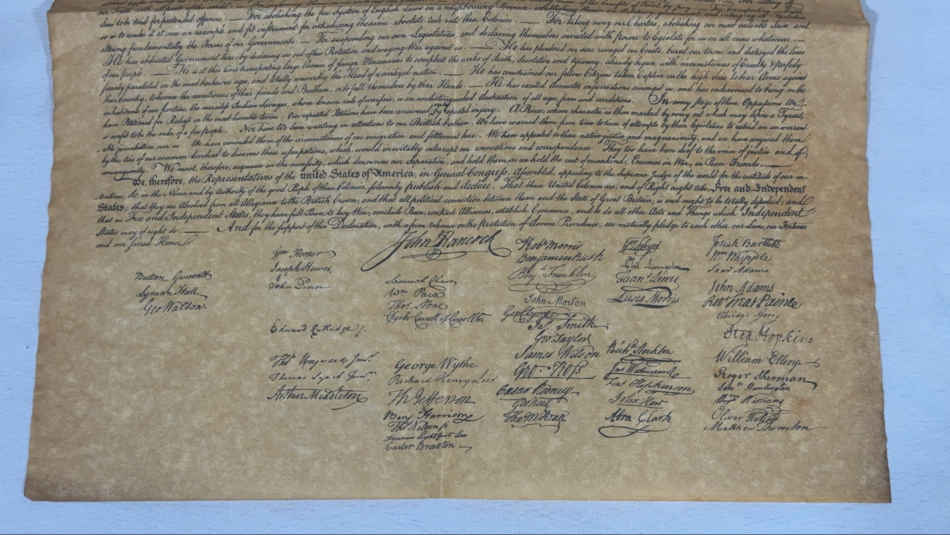 For abolishing the free System of English Laws in a neighbouring Province
so as to render it at once an example and fit instrument for introducing the same absolute rule into these Colonies
altering fundamentally the Forms of our Governments For suspending our own Legislatures, and declaring themselves invested with power to legislate for us in all cases whatsoever.
He has abdicated Government here, by declaring us out of his Protection and waging War against us. He has plundered our seas, ravaged our Coasts, burnt our towns, and destroyed the lives
of our people. He is at this time transporting large Armies of foreign Mercenaries to compleat the works of death, desolation and tyranny, already begun with circumstances of Cruelty & perfidy
He has constrained our fellow Citizens taken Captive on the high Seas to bear Arms against
their Country, to become the executioners of their friends and Brethren, or to fall themselves by their Hands. He has excited domestic insurrections amongst us, and has endeavoured to bring on the
inhabitants of our frontiers, the merciless Indian Savages, whose known rule of warfare, is an undistinguished destruction of all ages, sexes and conditions. In every stage of these Oppressions We
have Petitioned for Redress in the most humble terms: Our repeated Petitions have been answered only by repeated injury. A Prince, whose character is thus marked by every act which may define a Tyrant,
is unfit to be the ruler of a free people. Nor have We been wanting in attentions to our Brittish brethren. We have warned them from time to time of attempts by their legislature to extend an unwarrantable
jurisdiction over us. We have reminded them of the circumstances of our emigration and settlement here. We have appealed to their native justice and magnanimity, and we have conjured them
by the ties of our common kindred to disavow these usurpations, which, would inevitably interrupt our connections and correspondence. They too have been deaf to the voice of justice and of
consanguinity. We must, therefore, acquiesce in the necessity, which denounces our Separation, and hold them, as we hold the rest of mankind, Enemies in War, in Peace Friends.
We, therefore, the Representatives of the united States of America, in General Congress, Assembled, appealing to the Supreme Judge of the world for the rectitude of our in-
tentions, do, in the Name, and by Authority of the good People of these Colonies, solemnly publish and declare, That these United Colonies are, and of Right ought to be Free and Independent
States; that they are Absolved from all Allegiance to the British Crown, and that all political connection between them and the State of Great Britain, is and ought to be totally dissolved; and
that as Free and Independent States, they have full Power to levy War, conclude Peace, contract Alliances, establish Commerce, and to do all other Acts and Things which Independent
States may of right do. And for the support of this Declaration, with a firm reliance on the protection of divine Providence, we mutually pledge to each other our Lives, our Fortunes
and our sacred Honor.
Button Gwinnett
Lyman Hall
Geo Walton
Wm Hooper
Joseph Hewes
John Penn
Edward Rutledge
Thos Heyward Junr.
Thomas Lynch Junr.
Arthur Middleton
John Hancock
Samuel Chase
Wm Paca
Thos Stone
Charles Carroll of Carrollton
George Wythe
Richard Henry Lee
Th Jefferson
Benj Harrison
Thos Nelson jr
Francis Lightfoot Lee
Carter Braxton
Robt Morris
Benjamin Rush
Benj Franklin
John Morton
Geo Clymer
Jas Smith
Geo Taylor
James Wilson
Geo Ross
Caesar Rodney
Geo Read
Tho M:Kean
Wm Floyd
Phil Livingston
Frans Lewis
Lewis Morris
Richd Stockton
Jno Witherspoon
Fras Hopkinson
John Hart
Abra Clark
Josiah Bartlett
Wm Whipple
Saml Adams
John Adams
Robt Treat Paine
Elbridge Gerry
Step Hopkins
William Ellery
Roger Sherman
Saml Huntington
Wm Williams
Oliver Wolcott
Matthew Thornton